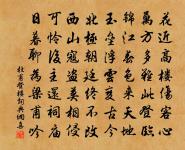 花近高樓傷客心
萬方多難此登臨
錦江春色來天地
玉壘浮雲變古今
北極朝廷終不改
西山寇盜莫相侵
可憐後主還祠廟
日暮聊為梁甫吟
杜甫登樓